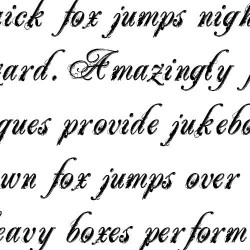 uick fox jumps nigh
ard. Amazingly f
ques provide jukebo
wn fox jumps over
eavy boxes perform